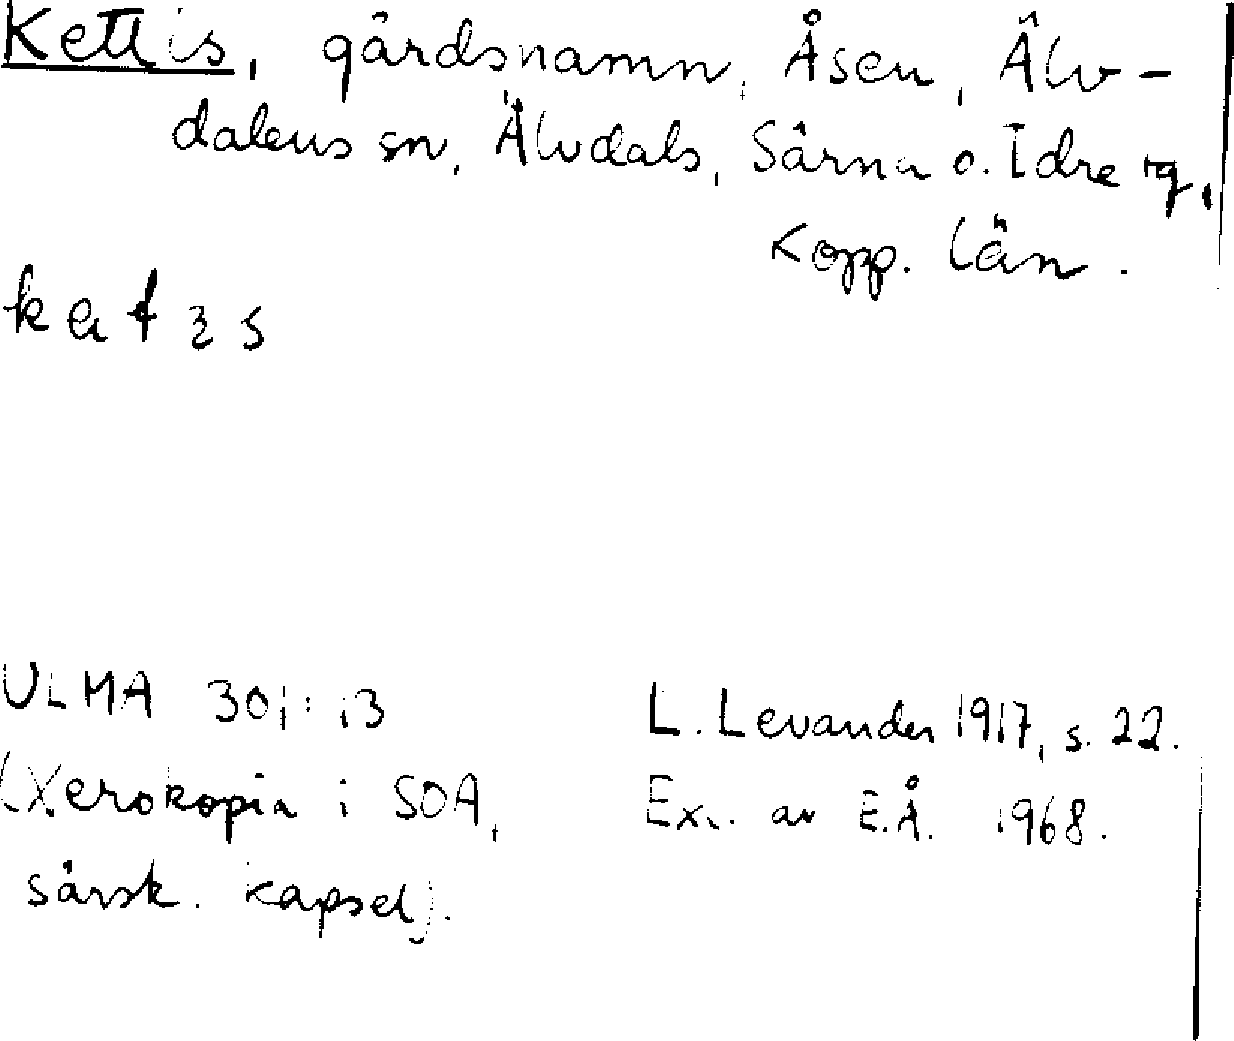 Kettis, gårdsnamn, Åsen, Älv-
dalens sn, Älvdals, Särna o. Idre tg,
Kopp. län.
ULMA 301:13
(Xerokopia i SOA,
särsk. kapsel).
L. Levander 1917, s. 22.
Exc. av E.Å. 1968.